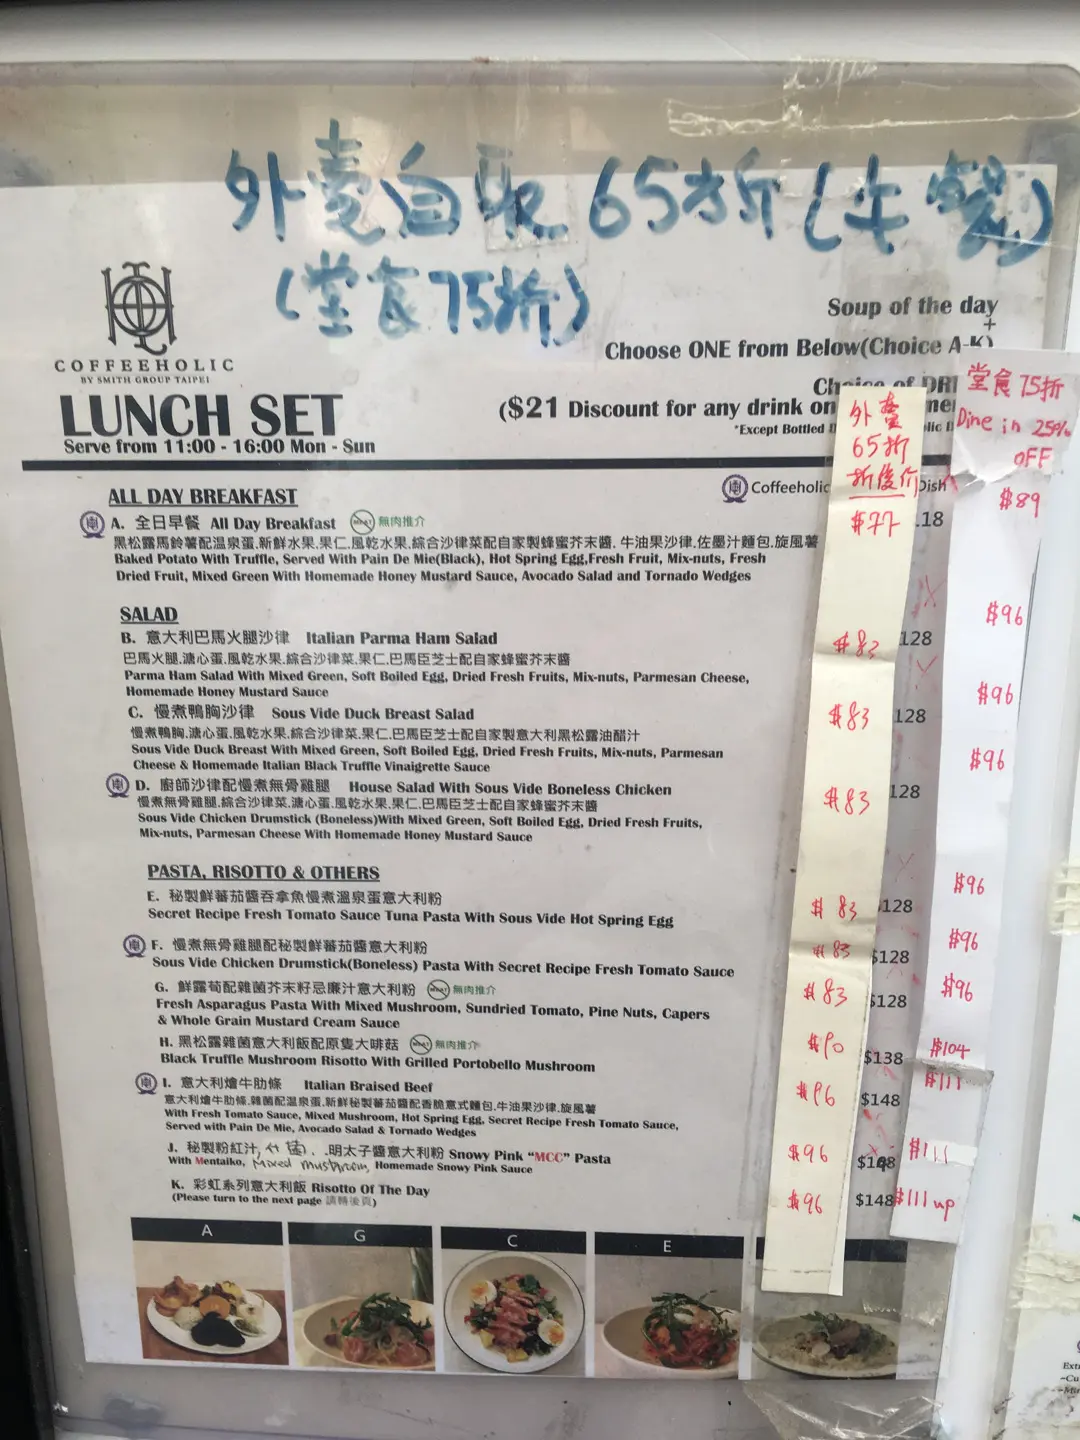 外賣自取 65折 (午餐)
(堂食75折)
COFFEEHOLIC
BY SMITH GROUP TAIPEI
LUNCH SET
Serve from 11:00 - 16:00 Mon - Sun
Soup of the day
+
Choose ONE from Below(Choice A-K)
Choice of
($21 Discount for any drink on
*Except Bottled
外賣
65折
折後价
堂食75折
Dine in 25%
OFF
ALL DAY BREAKFAST
Coffeeholic Dish
A. 全日早餐 All Day Breakfast 無肉推介 $77 118 $89
黑松露馬鈴薯配温泉蛋.新鮮水果.果仁.風乾水果.綜合沙律菜配自家製蜂蜜芥末醬. 牛油果沙律.佐墨汁麵包.旋風薯
Baked Potato With Truffle, Served With Pain De Mie(Black), Hot Spring Egg,Fresh Fruit, Mix-nuts, Fresh
Dried Fruit, Mixed Green With Homemade Honey Mustard Sauce, Avocado Salad and Tornado Wedges
SALAD
B. 意大利巴馬火腿沙律 Italian Parma Ham Salad $83 128 $96
巴馬火腿.溏心蛋.風乾水果.綜合沙律菜.果仁.巴馬臣芝士配自家蜂蜜芥末醬
Parma Ham Salad With Mixed Green, Soft Boiled Egg, Dried Fresh Fruits, Mix-nuts, Parmesan Cheese,
Homemade Honey Mustard Sauce
C. 慢煮鴨胸沙律 Sous Vide Duck Breast Salad $83 128 $96
慢煮鴨胸.溏心蛋.風乾水果.綜合沙律菜.果仁.巴馬臣芝士配自家製意大利黑松露油醋汁
Sous Vide Duck Breast With Mixed Green, Soft Boiled Egg, Dried Fresh Fruits, Mix-nuts, Parmesan
Cheese & Homemade Italian Black Truffle Vinaigrette Sauce
D. 廚師沙律配慢煮無骨雞腿 House Salad With Sous Vide Boneless Chicken $83 128 $96
慢煮無骨雞腿.綜合沙律菜.溏心蛋.風乾水果.果仁.巴馬臣芝士配自家蜂蜜芥末醬
Sous Vide Chicken Drumstick (Boneless)With Mixed Green, Soft Boiled Egg, Dried Fresh Fruits,
Mix-nuts, Parmesan Cheese With Homemade Honey Mustard Sauce
PASTA, RISOTTO & OTHERS
E. 秘製鮮蕃茄醬吞拿魚慢煮溫泉蛋意大利粉 $83 $128 $96
Secret Recipe Fresh Tomato Sauce Tuna Pasta With Sous Vide Hot Spring Egg
F. 慢煮無骨雞腿配秘製鮮蕃茄醬意大利粉 $83 $128 $96
Sous Vide Chicken Drumstick(Boneless) Pasta With Secret Recipe Fresh Tomato Sauce
G. 鮮露荀配雜菌芥末籽忌廉汁意大利粉 無肉推介 $83 $128 $96
Fresh Asparagus Pasta With Mixed Mushroom, Sundried Tomato, Pine Nuts, Capers
& Whole Grain Mustard Cream Sauce
H. 黑松露雜菌意大利飯配原隻大啡菇 無肉推介 $90 $138 $104
Black Truffle Mushroom Risotto With Grilled Portobello Mushroom
I. 意大利燴牛肋條 Italian Braised Beef $96 $148 $111
意大利燴牛肋條.雜菌配温泉蛋.新鮮秘製蕃茄醬配香脆意式麵包.牛油果沙律.旋風薯
With Fresh Tomato Sauce, Mixed Mushroom, Hot Spring Egg, Secret Recipe Fresh Tomato Sauce,
Served with Pain De Mie, Avocado Salad & Tornado Wedges
J. 秘製粉紅汁, 什菌, .明太子醬意大利粉 Snowy Pink "MCC" Pasta $96 $148 $111
With Mentaiko, Mixed mushroom, Homemade Snowy Pink Sauce
K. 彩虹系列意大利飯 Risotto Of The Day $96 $148 $111 up
(Please turn to the next page 請轉後頁)
A G C E